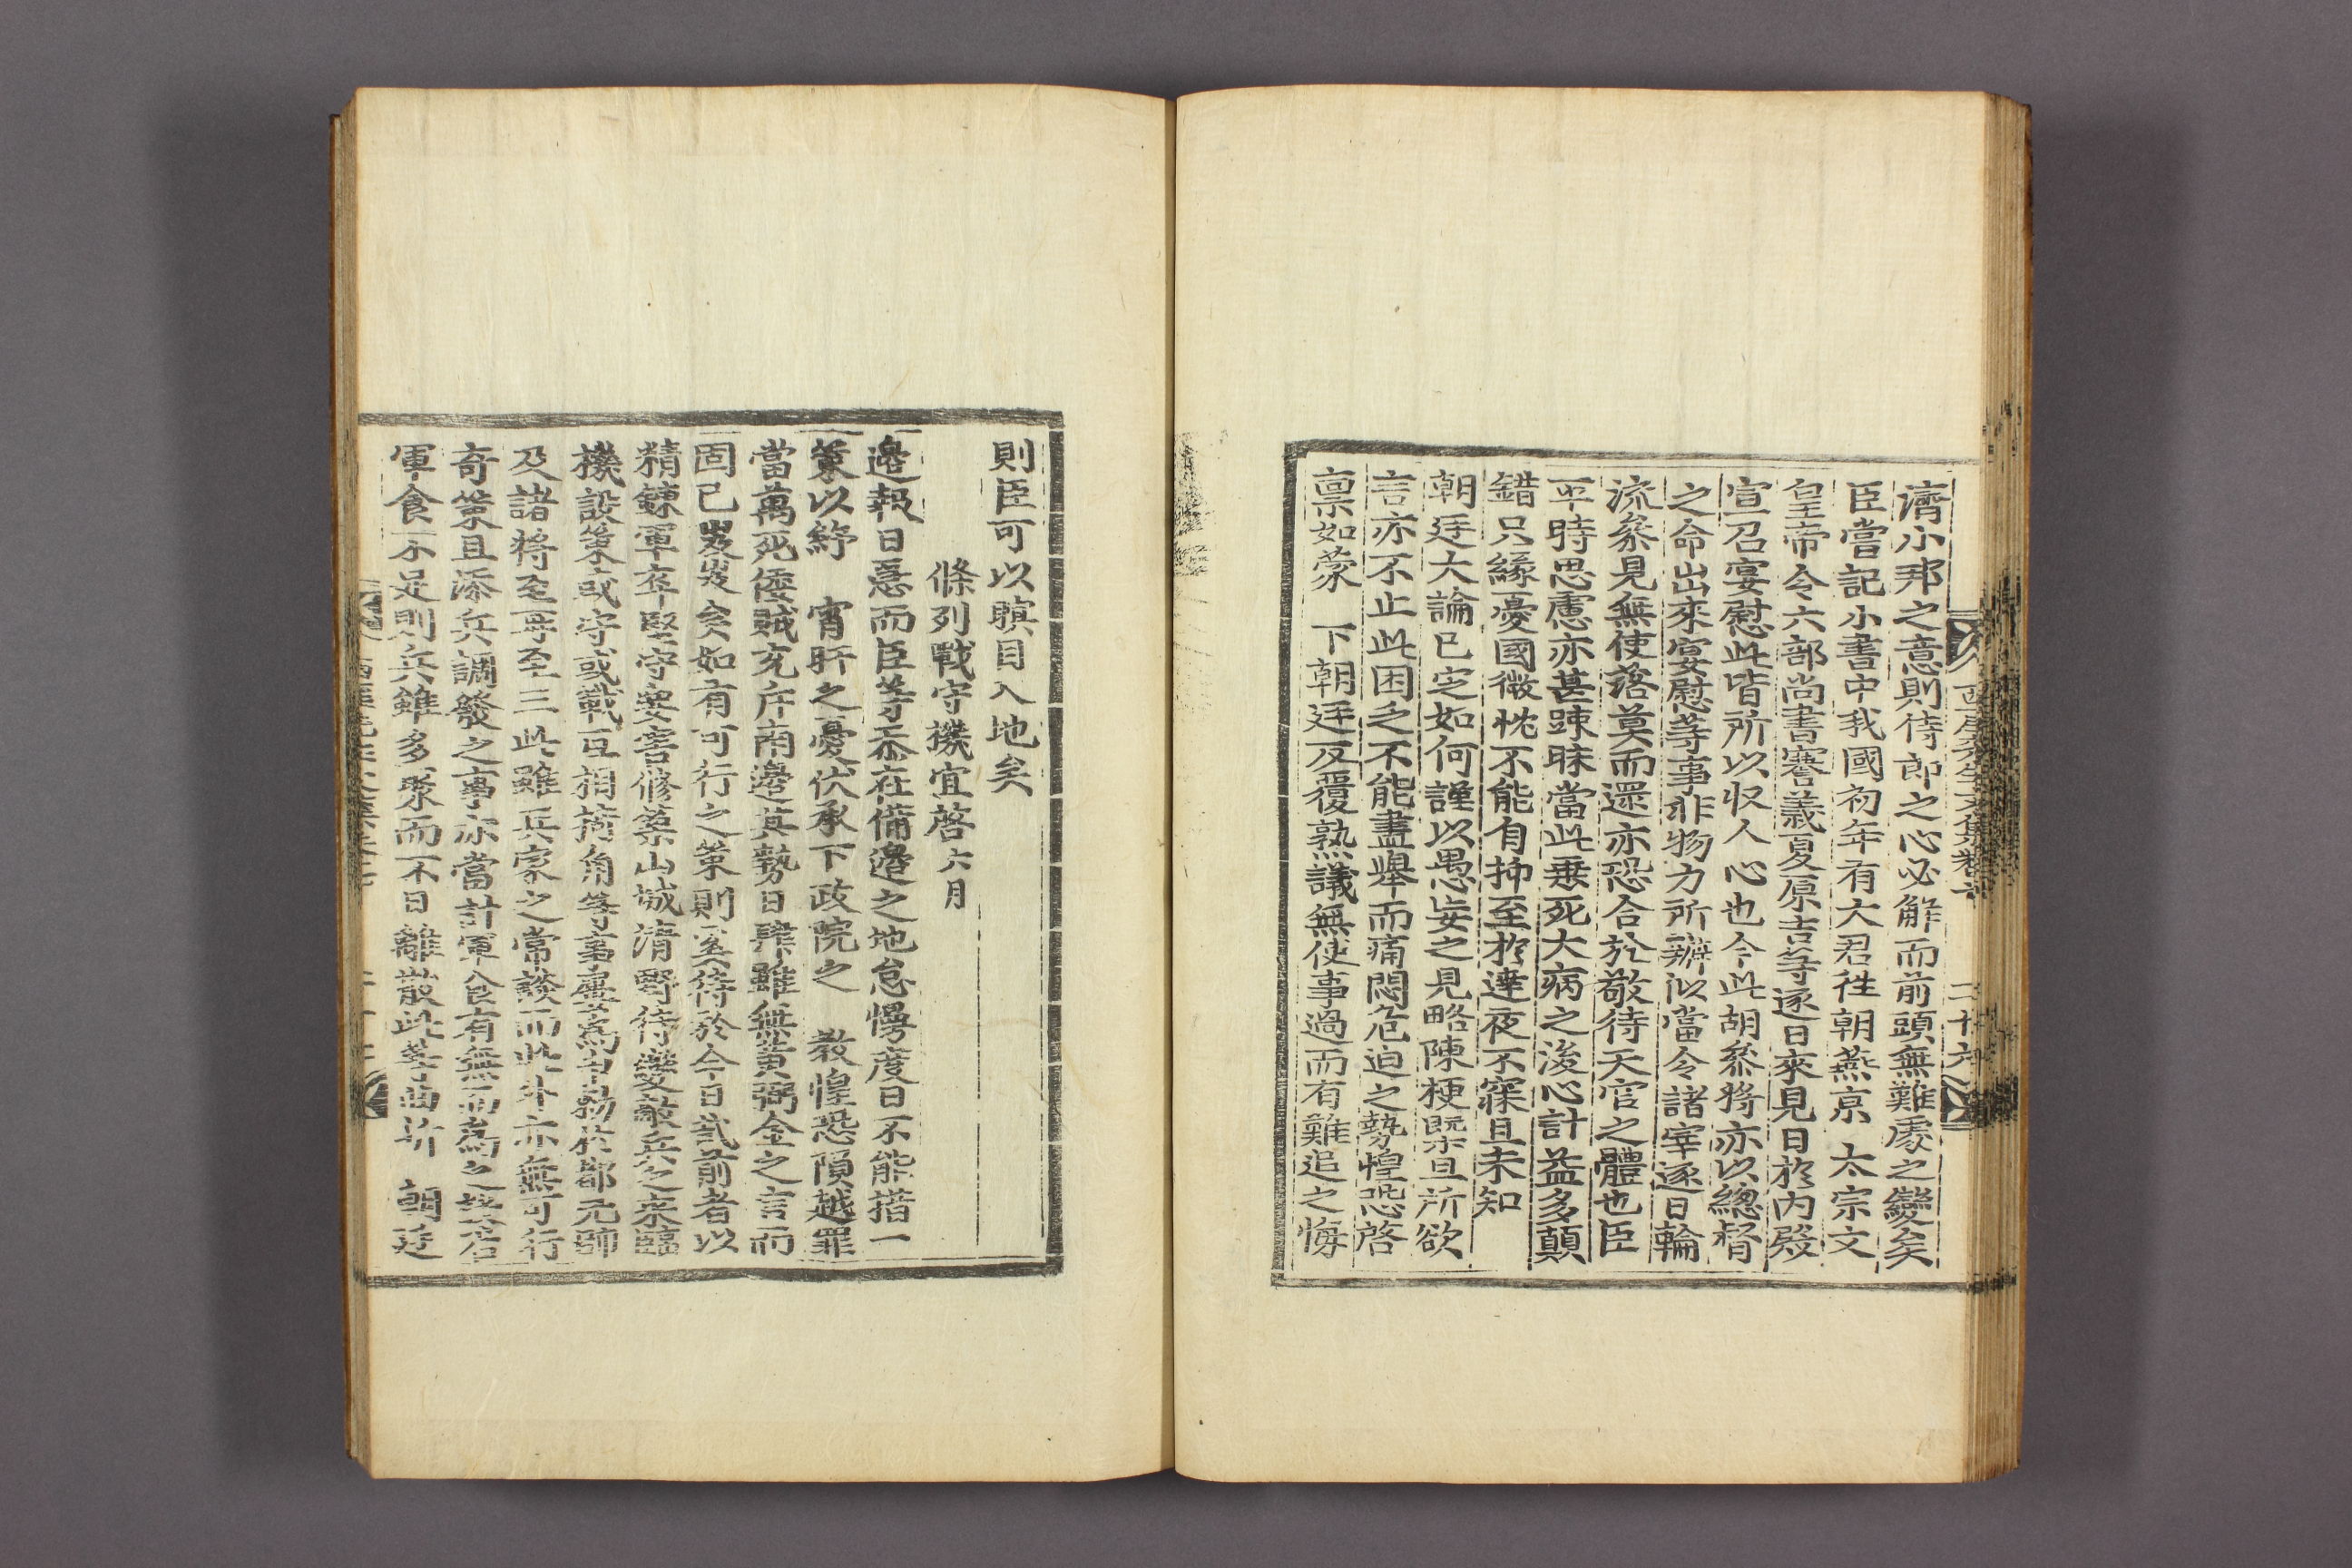 西厓先生文集卷七 二十六
濟小邦之意則侍郎之心必解而前頭無難處之變矣
臣嘗記小書中我國初年有大君徃朝燕京 太宗文
皇帝令六部尚書蹇義夏原吉等逐日來見日於內殿
宣召宴慰此皆所以收人心也今此胡叅將亦以總督
之命出來宴慰等事非物力所辦似當令諸宰逐日輪
流叅見無使落莫而還亦恐合於敬待天官之體也臣
平時思慮亦甚踈昧當此垂死大病之後心計益多顛
錯只緣憂國微忱不能自抑至於達夜不寐且未知
朝廷大論已定如何謹以愚妄之見略陳梗槩且所欲
言亦不止此困乏不能盡擧而痛悶危迫之勢惶恐啓
禀如蒙 下朝廷反覆熟議無使事過而有難追之悔
則臣可以瞑目入地矣
條列戰守機宜啓六月
邊報日急而臣等忝在備邊之地怠慢度日不能措一
策以紓 宵旰之憂伏承下政院之 敎惶恐隕越罪
當萬死倭賊充斥南邊其勢日肆雖無黃弼金之言而
固已岌岌矣如有可行之策則奚待於今日哉前者以
精鍊軍卒堅守要害修築山城淸野待變敵兵之來臨
機設策或守或戰互相掎角等事屢爲申勑於都元帥
及諸將至再至三此雖兵家之常談而此外亦無可行
奇策且添兵調發之事亦當計軍食有無而爲之蓋若
軍食不足則兵雖多聚而不日離散此等曲折 朝廷